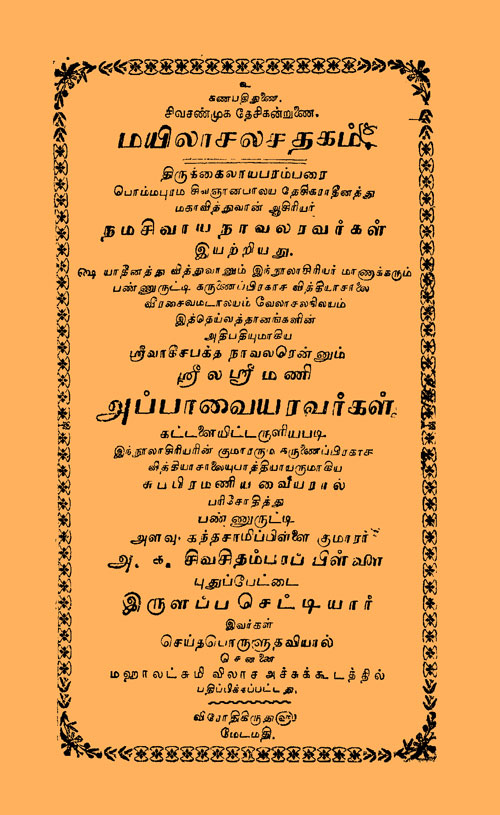 உ
கணபதிதுணை.
சிவசண்முக தேசிகன்றுணை.
மயிலாசலசதகம்.
திருக்கைலாயபரம்பரை
பொம்மபுரம் சிவஞானபாலய தேசிகராதீனத்து
மகாவித்துவான் ஆசிரியர்
நமசிவாயநாவலரவர்கள்
இயற்றியது.
௸ யாதீனத்து வித்துவானும் இந்நூலாசிரியர் மாணாக்கரும்
பண்ணுருட்டி கருணைப்பிரகாச வித்தியாசாலை
வீரசைவமடாலயம் வேலாசலநிலயம்
இத்தெய்வத்தானங்களின்
அதிபதியுமாகிய
ஸ்ரீவாகீசபக்த நாவலரென்னும்
ஸ்ரீ ல ஸ்ரீ ம ணி
அப்பாவையரவர்கள்
கட்டளையிட்டருளியபடி
இந்நூலாசிரியரின் குமாரரும் கருணைப்பிரகாச
வித்தியாசாலையுபாத்தியாயருமாகிய
சுப்பிரமணிய வையரால்
பரிசோதித்து
பண்ணுருட்டி
அளவு. கந்தசாமிப்பிள்ளை குமாரர்
அ. க. சிவசிதம்பரப் பிள்ளை
புதுப்பேட்டை
இருளப்ப செட்டியார்
இவர்கள்
செய்தபொருளுதவியால்
சென்னை
மஹாலட்சுமி விலாச அச்சுக்கூடத்தில்
பதிப்பிக்கப்பட்டது.
விரோதிகிருது௵
மேடமதி.